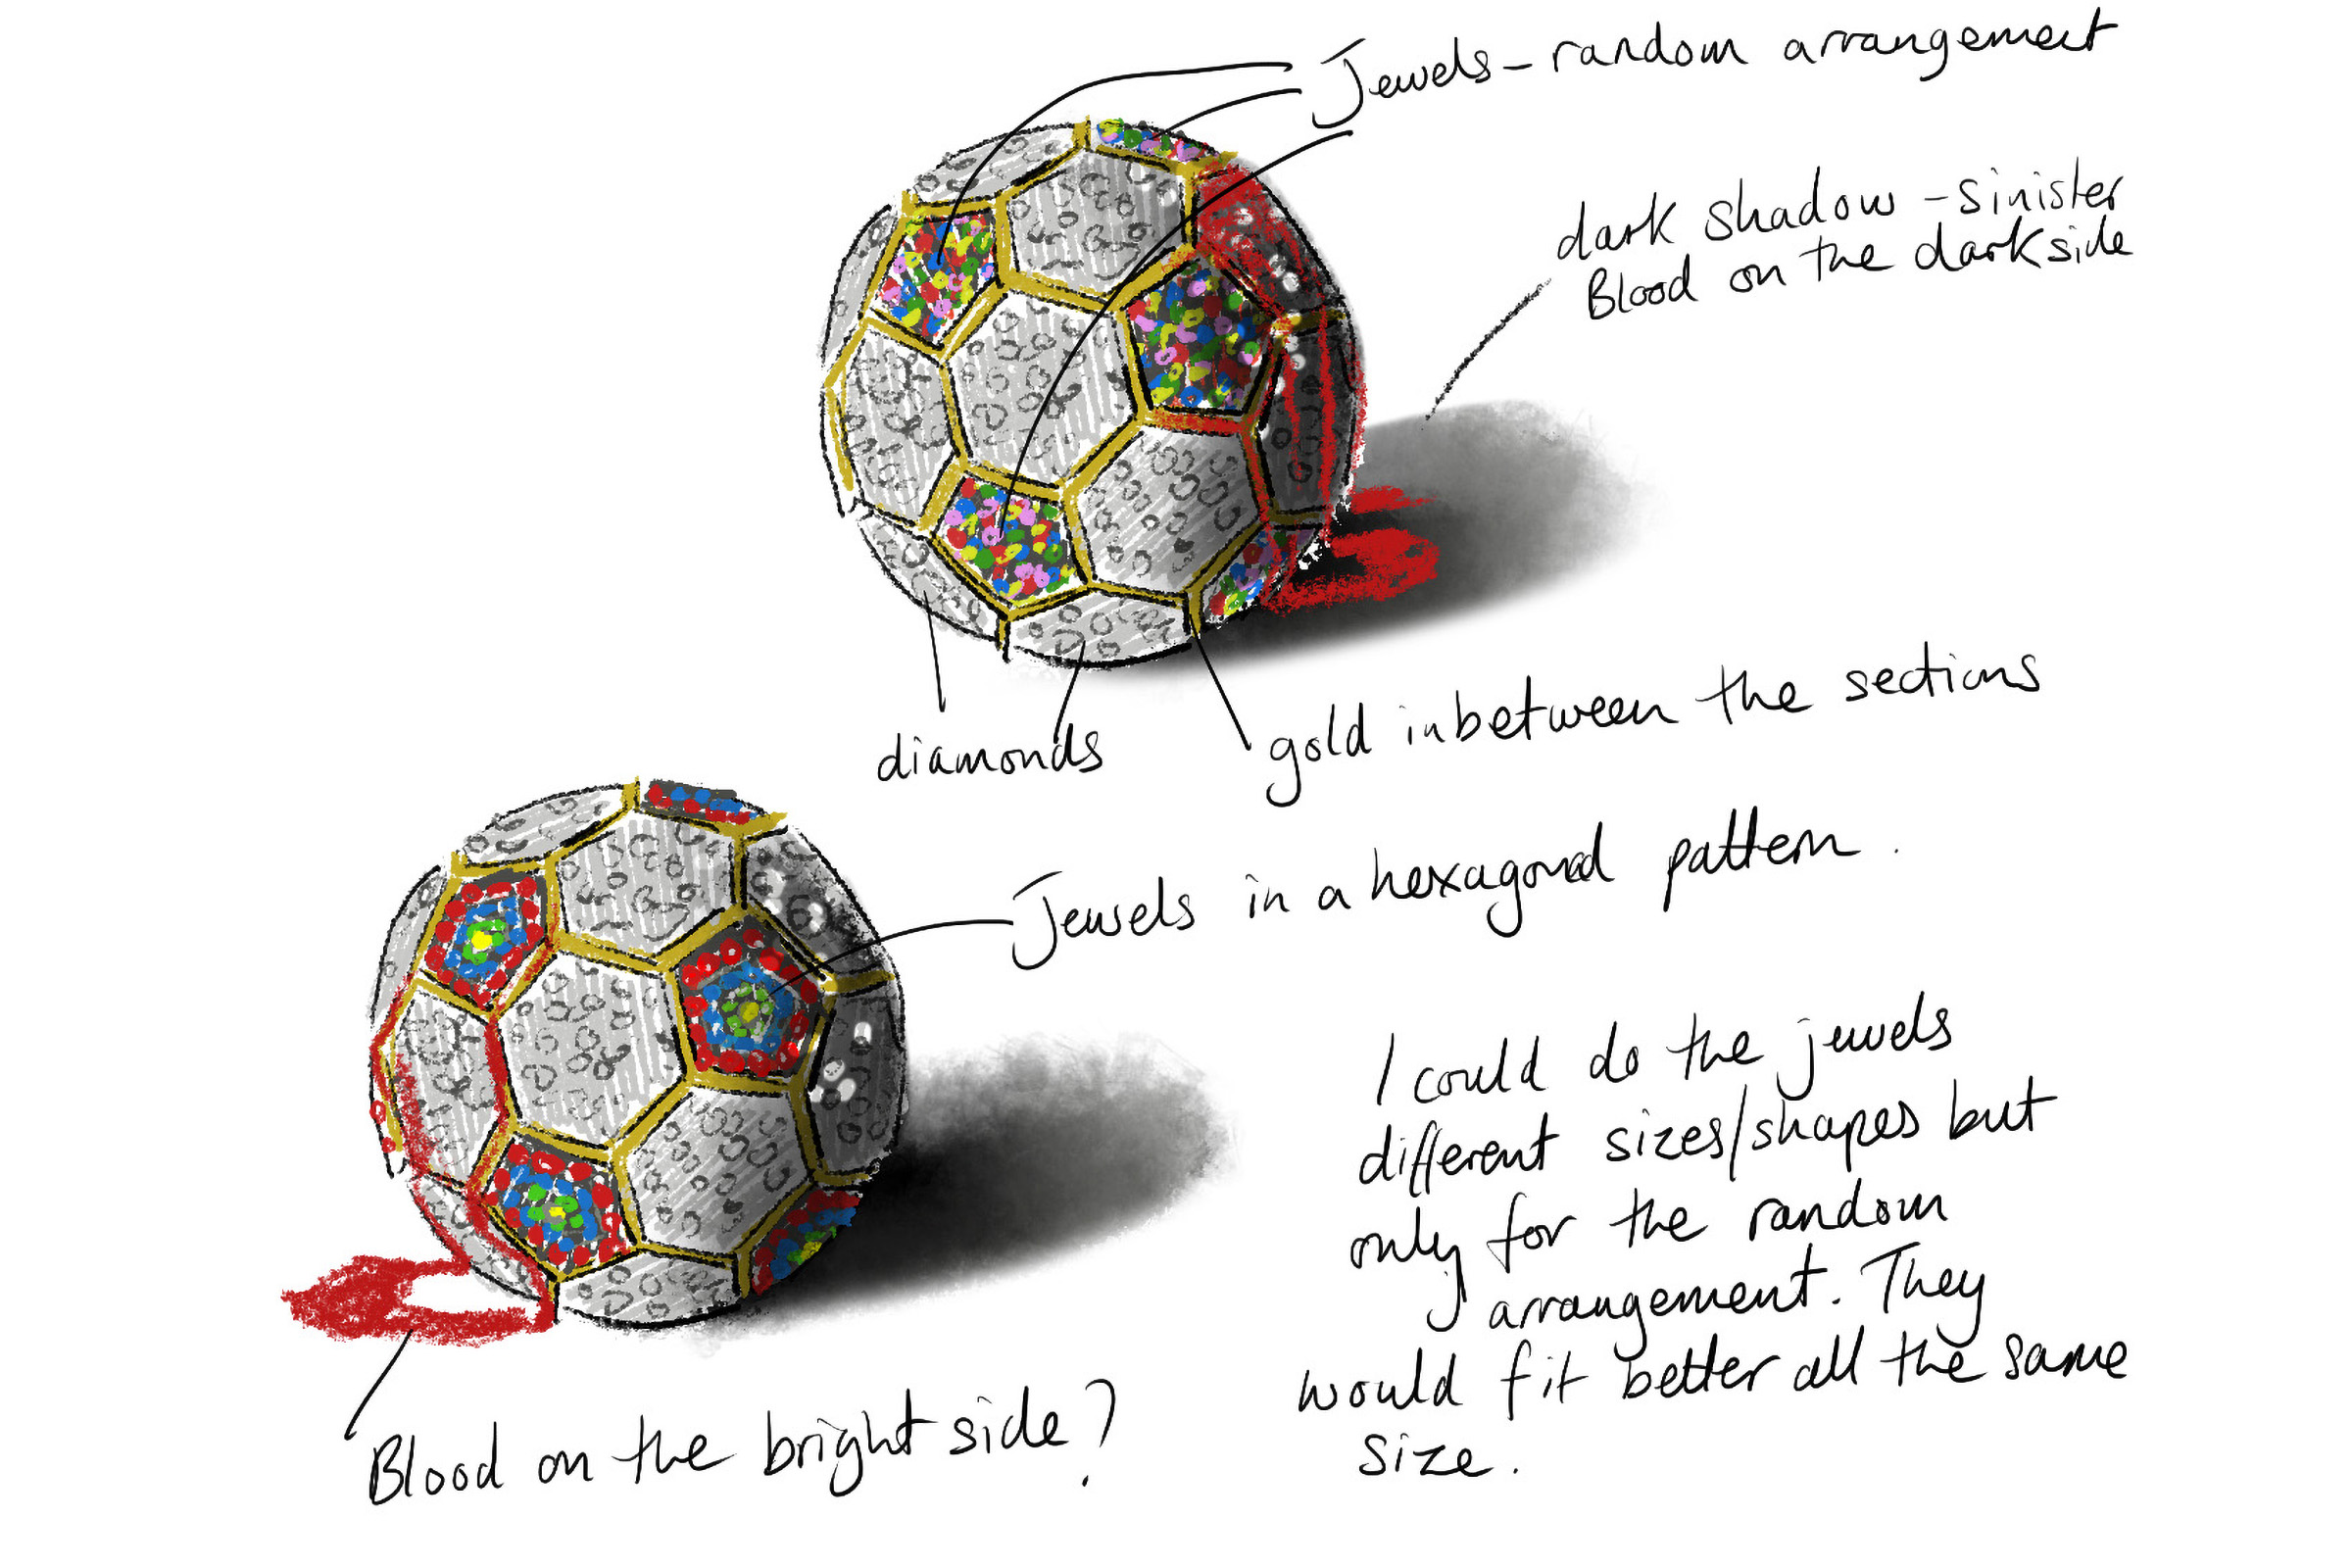 Jewels - random arrangement
dark shadow - sinister
Blood on the dark side
diamonds
gold inbetween the sections
Jewels in a hexagonal pattern.
I could do the jewels
different sizes/shapes but
only for the random
arrangement. They
would fit better all the same
size.
Blood on the bright side?